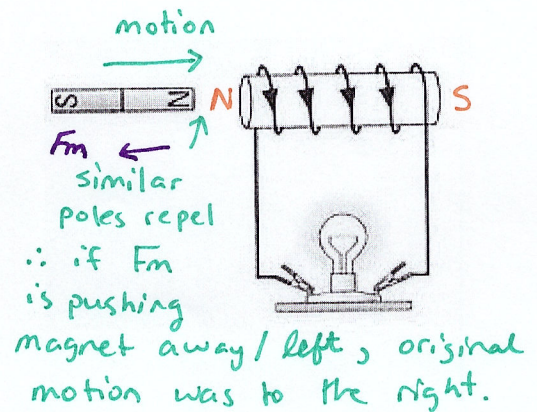 motion
S N
N
S
Fm
similar
poles repel
∴ if Fm
is pushing
magnet away/left, original
motion was to the right.